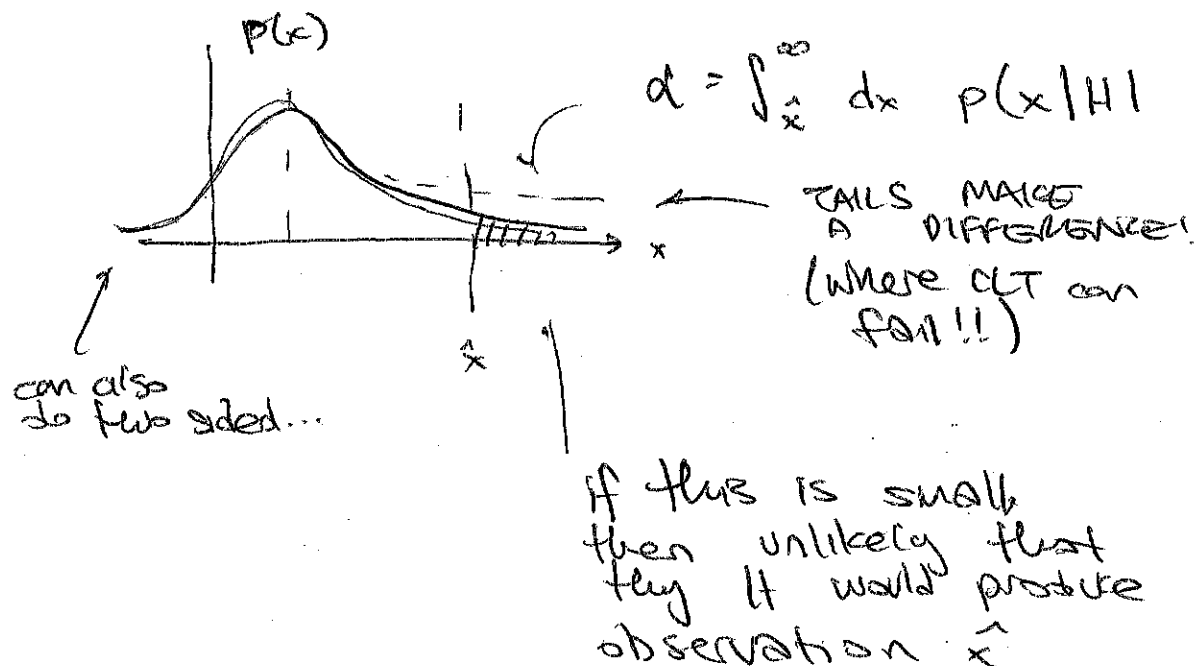 p(x)
α = ∫_x̂^∞ dx p(x|H)
TAILS MAKE
A DIFFERENCE!
(where CLT can
fail!!)
x
x̂
can also
do two sided...
if this is small,
then unlikely that
thy H would produce
observation x̂